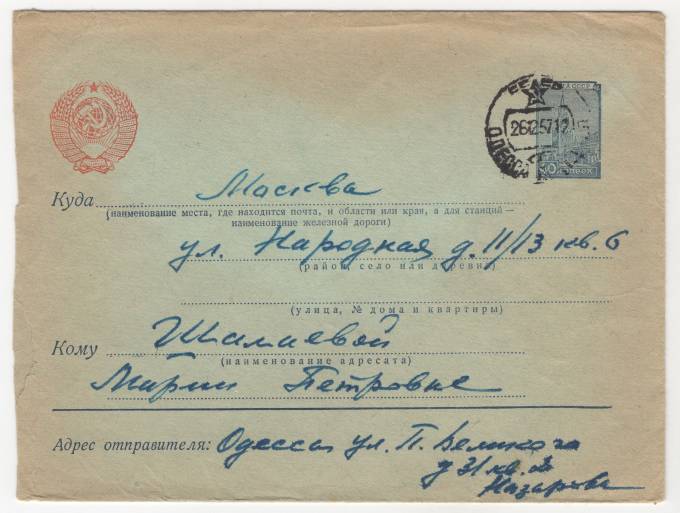 ОДЕССА
26 12 57 12
КОПЕЕК
Куда Москва
(наименование места, где находится почта, и области или края, а для станций —
наименование железной дороги)
ул. Народная д. 11/13 кв. 6
(район, село или деревня)
(улица, № дома и квартиры)
Кому
(наименование адресата)
Марии Петровне
Адрес отправителя: Одесса ул. П. Великого
д 31 кв.
Назарова